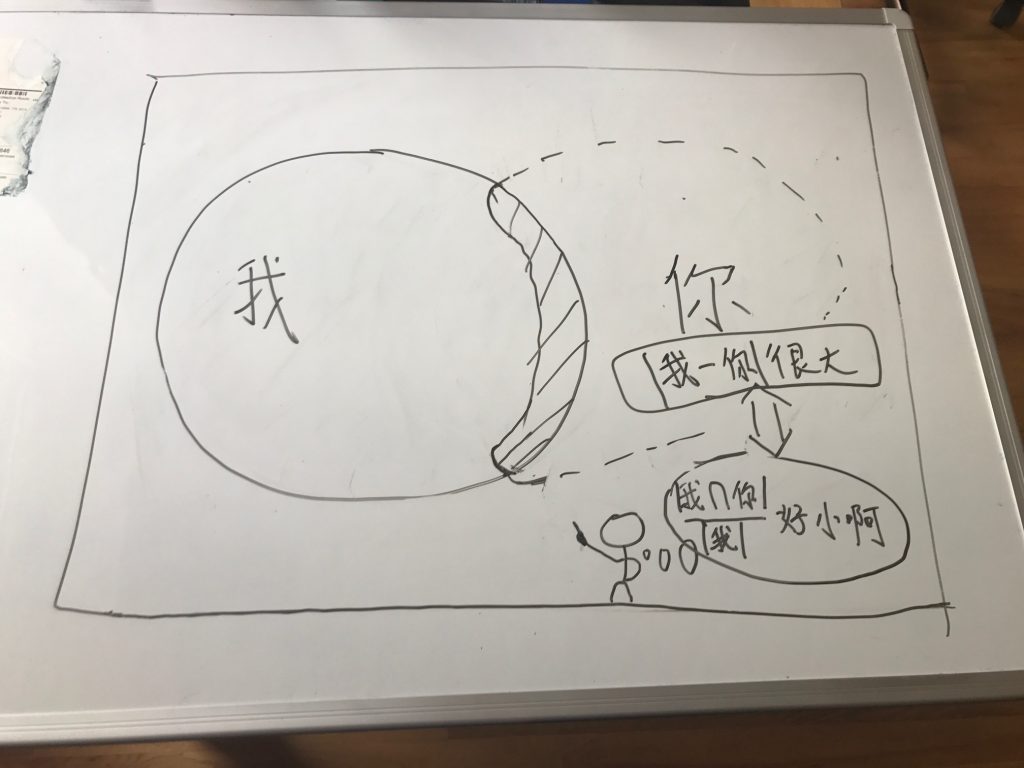 我
你
|我-你|很大
|我∩你|
|我|
好小啊